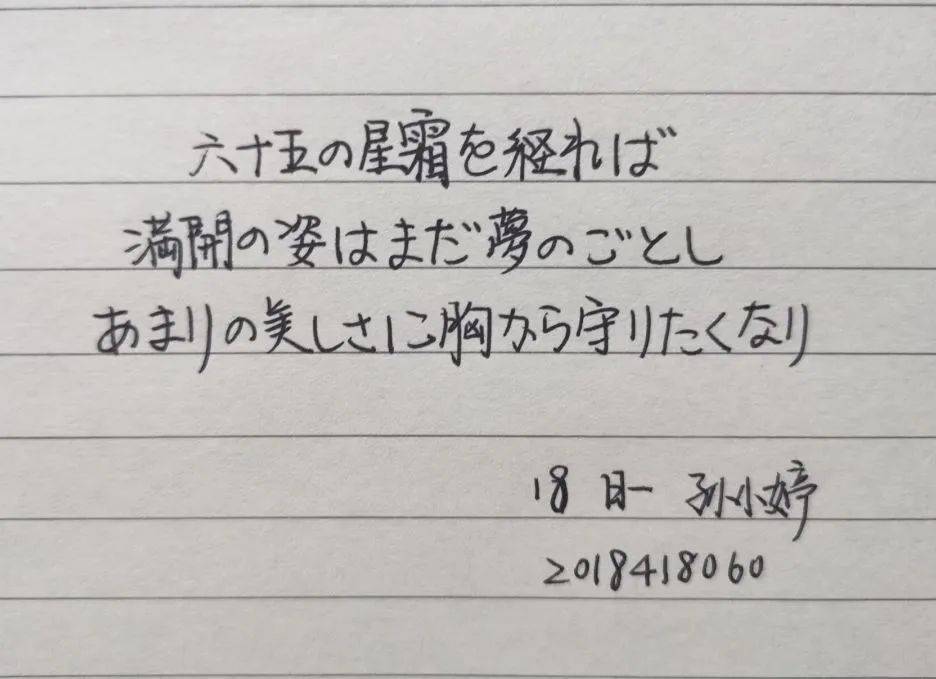 六十五の星霜を経れば
満開の姿はまだ夢のごとし
あまりの美しさに胸から守りたくなり
18 日一 孙小婷
2018418060